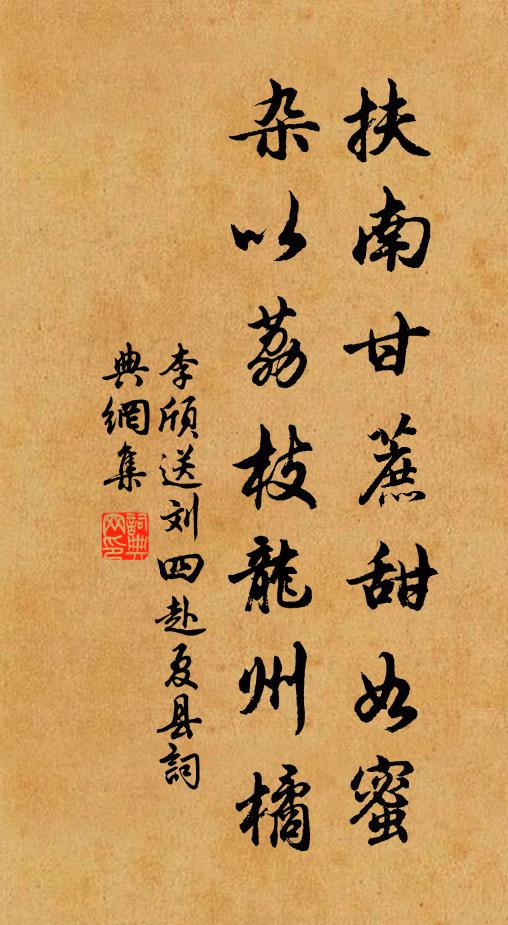 扶南甘蔗甜如蜜
杂以荔枝龍州橘
李颀送刘四赴夏县詞
典網集
詞典
网印